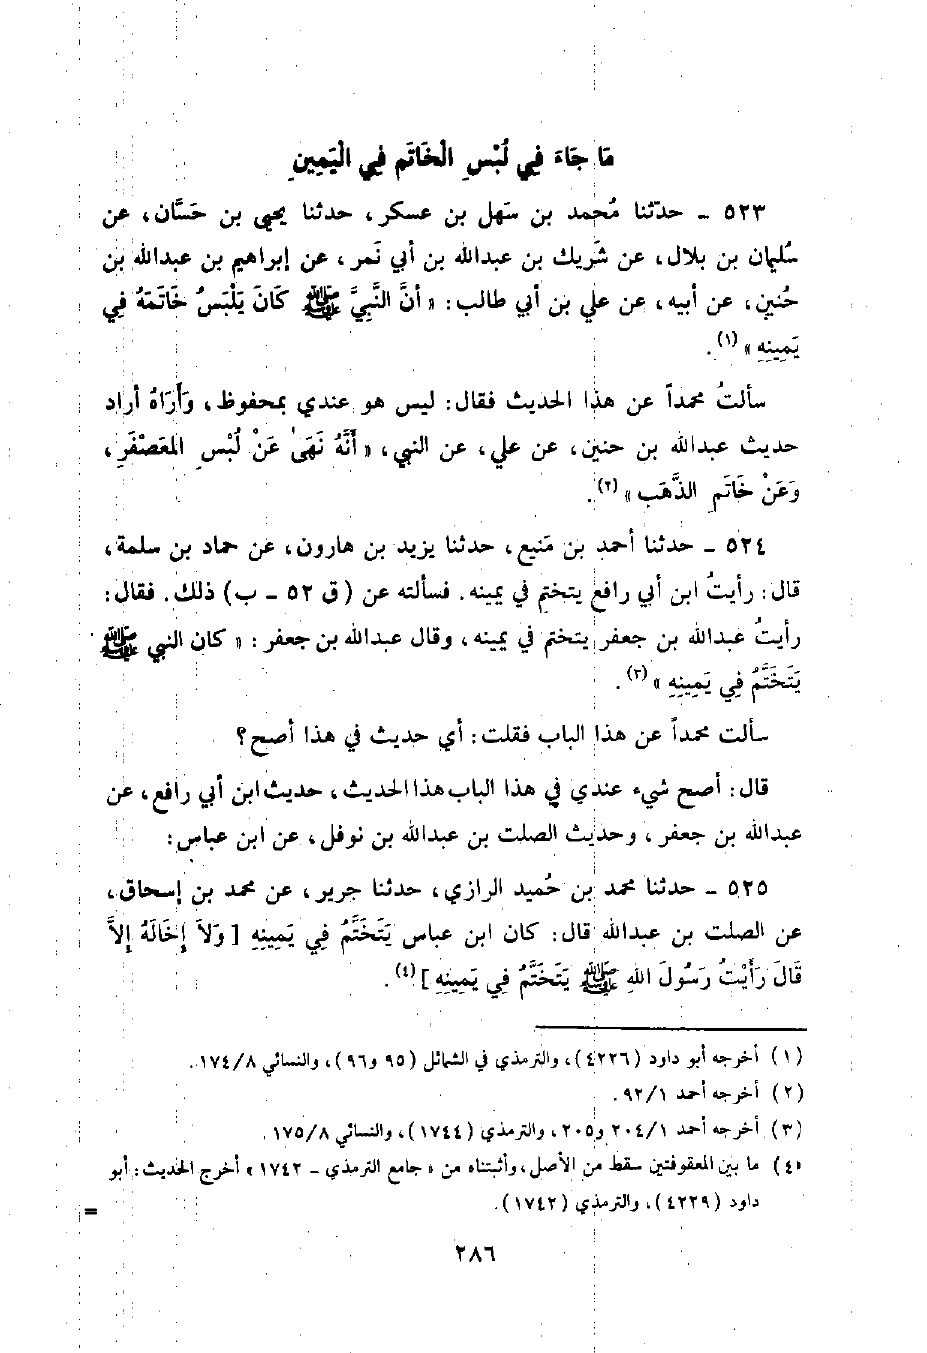 مَا جَاءَ فِي لُبْسِ الْخَاتَمِ فِي الْيَمِينِ
٥٢٣ - حدثنا مُحمد بن سَهل بن عسكر، حدثنا يحيى بن حَسَّان، عن
سُليمان بن بلال، عن شَريك بن عبدالله بن أبي نَمر، عن إبراهيم بن عبدالله بن
حُنينٍ، عن أبيه، عن علي بن أبي طالب: « أنَّ النَّبِيَّ ﷺ كَانَ يَلْبَسُ خَاتَمَهُ فِي
يَمِينِهِ »(١).
سألتُ محمداً عن هذا الحديث فقال: ليس هو عندي بمحفوظ، وَأَرَاهُ أراد
حديث عبدالله بن حنين، عن علي، عن النبي، « أَنَّهُ نَهَىٰ عَنْ لُبْسِ المعَصْفَرِ،
وَعَنْ خَاتَمِ الذَّهَب »(٢).
٥٢٤ - حدثنا أحمد بن مَنيع، حدثنا يزيد بن هارون، عن حماد بن سلمة،
قال: رأيتُ ابن أبي رافع يتختم في يمينه. فسألته عن (ق ٥٢ - ب) ذلك. فقال:
رأيتُ عبدالله بن جعفر يتختم في يمينه، وقال عبدالله بن جعفر: « كان النبي ﷺ
يَتَخَتَّمُ فِي يَمِينِهِ »(٣).
سألت محمداً عن هذا الباب فقلت: أي حديث في هذا أصح؟
قال: أصح شيء عندي في هذا الباب هذا الحديث، حديث ابن أبي رافع، عن
عبدالله بن جعفر، وحديث الصلت بن عبدالله بن نوفل، عن ابن عباس:
٥٢٥ - حدثنا محمد بن حُميد الرازي، حدثنا جرير، عن محمد بن إسحاق،
عن الصلت بن عبدالله قال: كان ابن عباس يَتَخَتَّمُ فِي يَمِينِهِ [ وَلاَ إِخَالَهُ إِلاَّ
قَالَ رَأَيْتُ رَسُولَ اللهِ ﷺ يَتَخَتَّمُ فِي يَمِينِهِ ](٤).
(١) أخرجه أبو داود (٤٢٢٦)، والترمذي في الشمائل (٩٥ و٩٦)، والنسائي ١٧٤/٨.
(٢) أخرجه أحمد ٩٢/١.
(٣) أخرجه أحمد ٢٠٤/١ و٢٠٥، والترمذي (١٧٤٤)، والنسائي ١٧٥/٨.
(٤) ما بين المعقوفتين سقط من الأصل، وأثبتناه من « جامع الترمذي - ١٧٤٢ » أخرج الحديث: أبو
داود (٤٢٢٩)، والترمذي (١٧٤٢).
=
٢٨٦